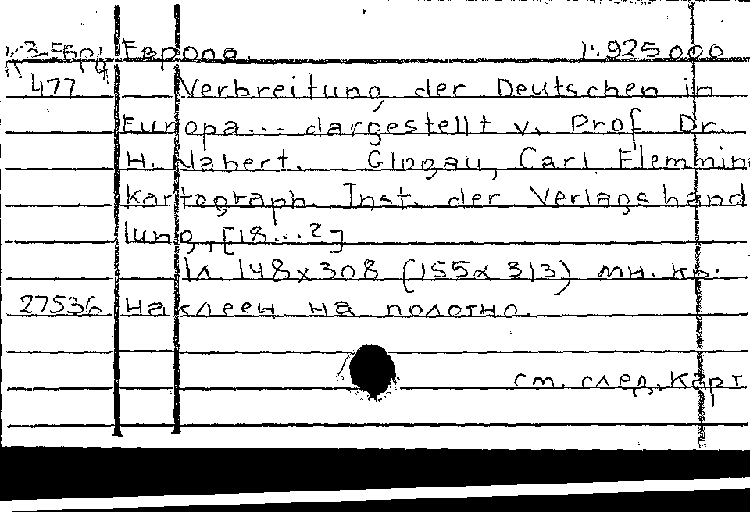 к3-Евр Европа. 1:925000
477 Verbreitung der Deutschen in
Europa... dargestellt v. Prof. Dr.
H. Nabert. Glogau, Carl Flemmin
Kartograph. Inst. der Verlagshand
lung, [18...?]
1л. 148x308 (155x313) мн. кр.
27536 наклеен на полотно.
см. след. карт